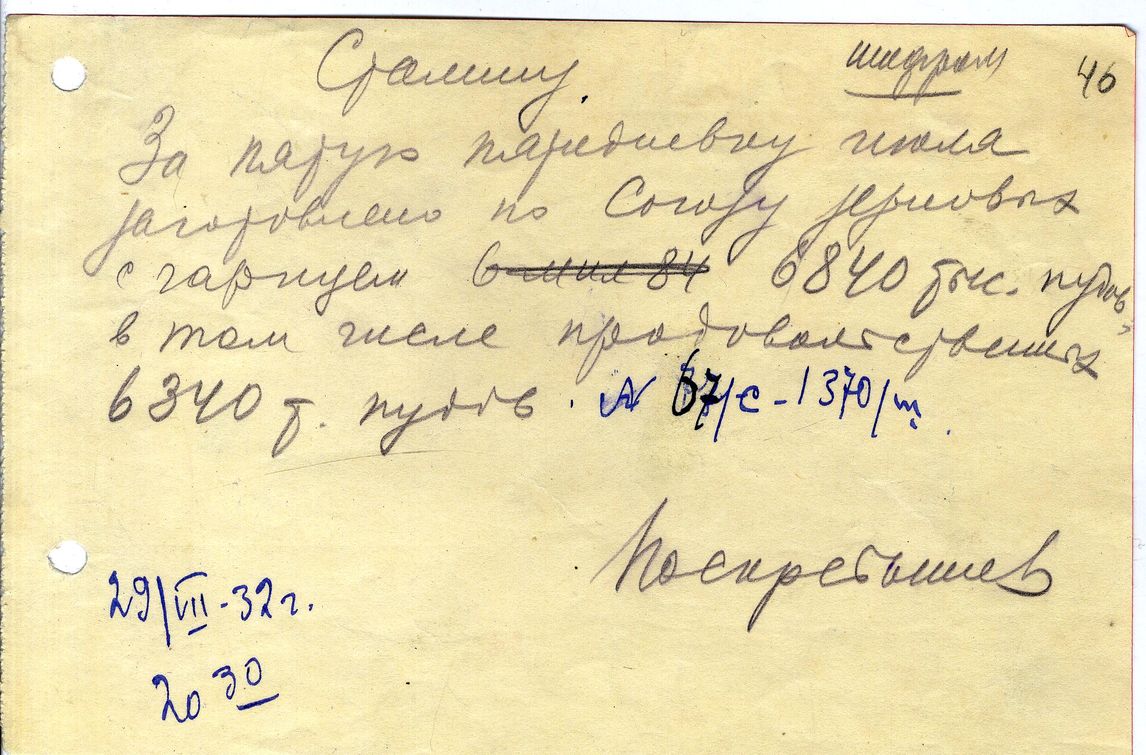 Сталину.
шифром
46
За пятую пятидневку июля
заготовлено по Союзу зерновых
с гарнцем 6 мил 84 6840 тыс. пудов,
в том числе продовольственных
6340 т. пудов. N 67/с-1370/ш.
Поскребышев
29/VII-32 г.
20 30